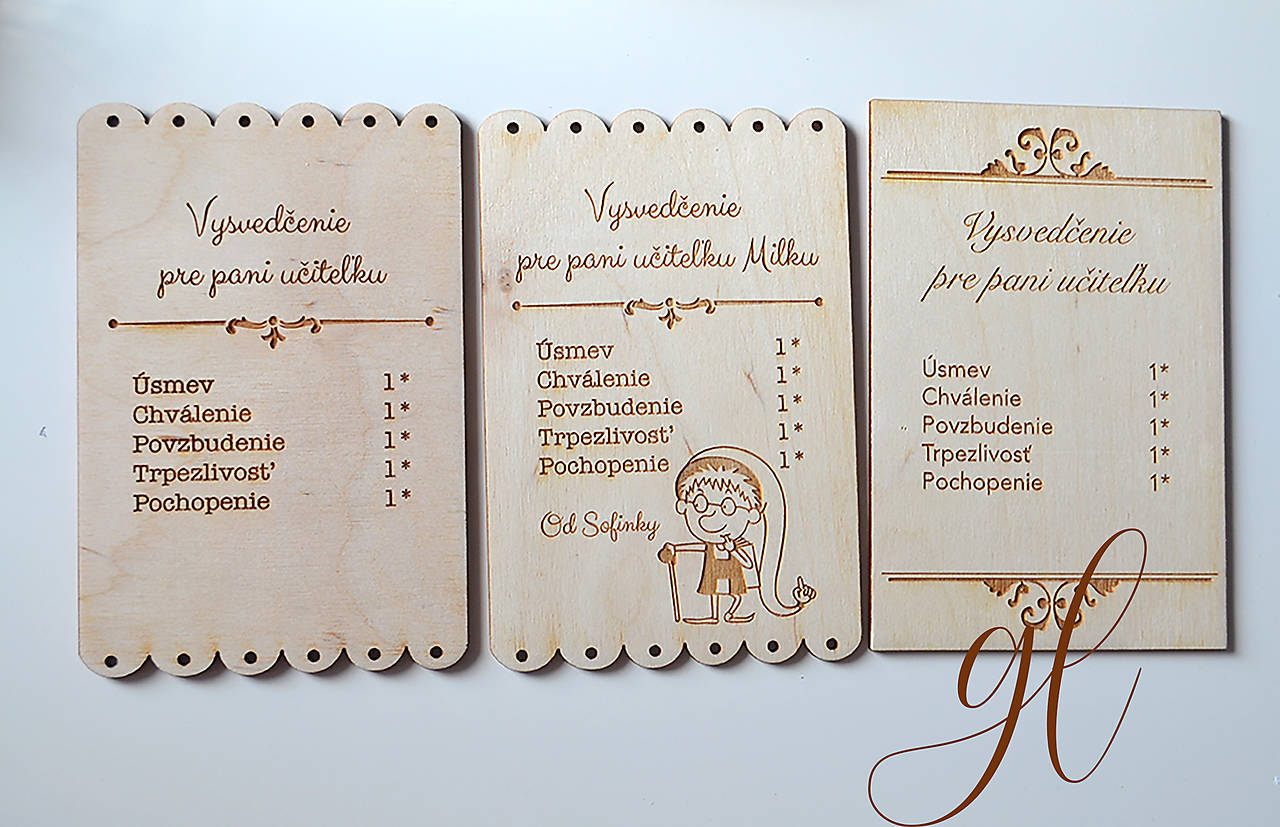 Vysvedčenie
pre pani učiteľku
Úsmev 1*
Chválenie 1*
Povzbudenie 1*
Trpezlivosť 1*
Pochopenie 1*
Vysvedčenie
pre pani učiteľku Milku
Úsmev 1*
Chválenie 1*
Povzbudenie 1*
Trpezlivosť 1*
Pochopenie 1*
Od Sofinky
Vysvedčenie
pre pani učiteľku
Úsmev 1*
Chválenie 1*
Povzbudenie 1*
Trpezlivosť 1*
Pochopenie 1*
gl